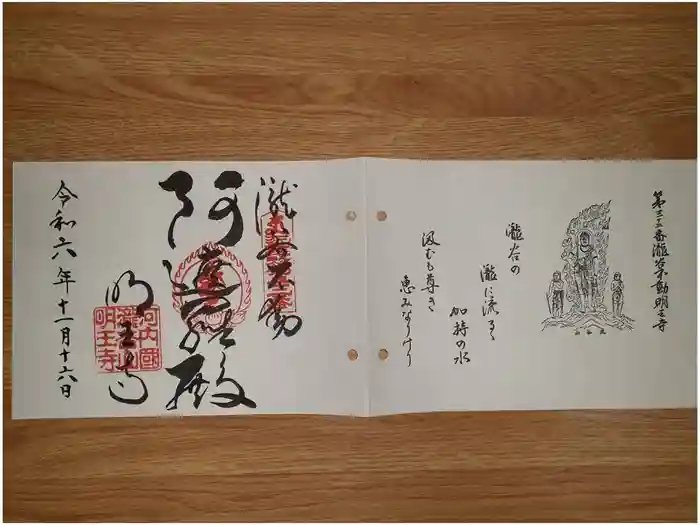 第三十三番瀧谷不動明王寺
瀧谷の
瀧に流るゝ
加持の水
汲むも尊き
恵みなりけり
瀧谷不動
阿遮羅殿
明王寺
河内國
瀧谷山
明王寺
令和六年十一月十六日